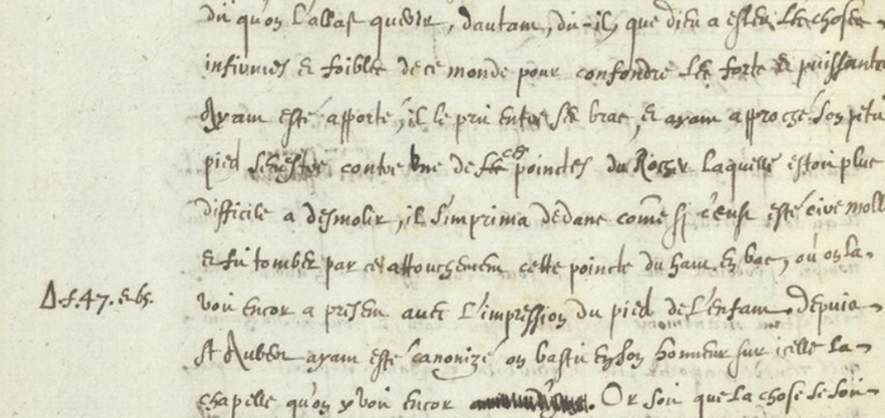 dit qu'on l'allast querir, dautant, dit-il, que dieu a esleu les choses
infirmes et foibles de ce monde pour confondre les fortes et puissantes
Ayant esté apporté, il le prit entre ses bras, et ayant approché son petit
pied senestre contre une de ces poinctes du Rocher laquelle estoit plus
difficile a desmolir, il s'imprima dedans come si c'eust esté cire molle
et fit tomber par cet attouchement cette poincte du haut en bas, où on la
Δ.f.47.
voit encor a present avec l'impression du pied de l'enfant. depuis
st Aubert ayant esté canonizé on bastit en son honneur sur icelle la
chapelle qu'on y voit encor. Or soit que la chose se soit